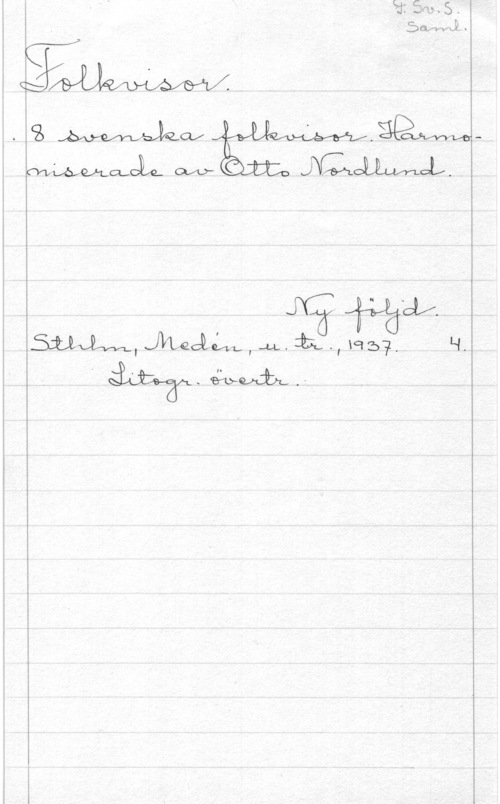 F. Sv. S.
Saml.
Folkvisor.
8 svenska folkvisor. Harmo-
niserade av Otto Nordlund.
Ny följd.
Sthlm, Medén, u. tr., 1937. 4.
Litogr. övertr.